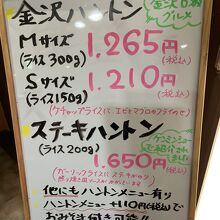 金沢ハントン
金沢B級
グルメ
Mサイズ 1,265円
(ライス300g) (税込)
Sサイズ 1,210円
(ライス150g) (税込)
(ケチャップライスに、エビとマグロのフライのせ)
ステーキハントン
(ライス200g)
ケンミンショー
で紹介され
ました
1,650円
(税込)
(ガーリックライスにステーキがのり
他にもハントンメニュー有り
ハントンメニュー+110円(税込)で
おみそ汁付き可能!!